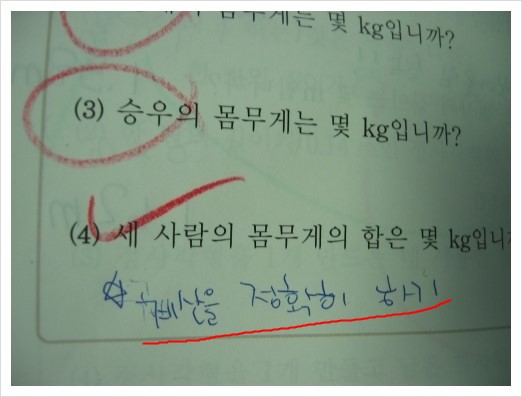 몸무게는 몇 kg입니까?
(3) 승우의 몸무게는 몇 kg입니까?
(4) 세 사람의 몸무게의 합은 몇 kg입니
☆ 계산을 정확히 하기